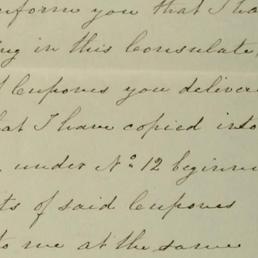 inform you that I ha
ing in this Consulate
Cupones you deliver
hat I have copied into
under No. 12 beginn
ts of said Cupones
to me at the same